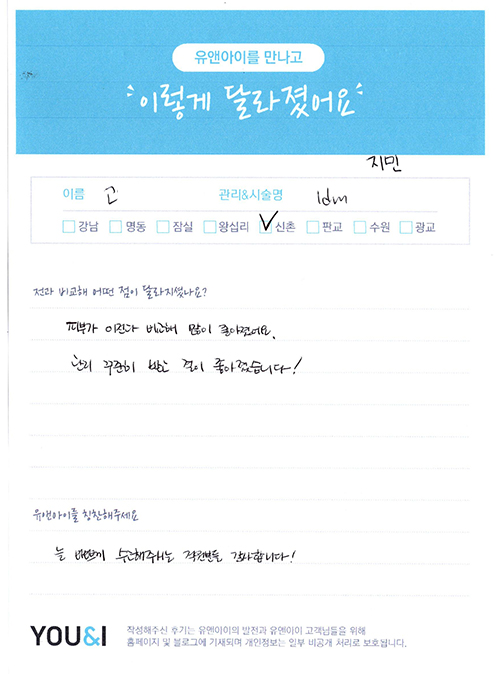 유앤아이를 만나고
이렇게 달라졌어요
지민
이름 고 관리&시술명 ldm
강남 명동 잠실 왕십리 신촌 판교 수원 광교
전과 비교해 어떤 점이 달라지셨나요?
피부가 이전과 비교해 많이 좋아졌어요.
관리 꾸준히 받고 결이 좋아졌습니다!
유앤아이를 칭찬해주세요
늘 바쁘게 수고해주시는 직원분들 감사합니다!
YOU&I
작성해주신 후기는 유앤아이의 발전과 유앤아이 고객님들을 위해
홈페이지 및 블로그에 기재되며 개인정보는 일부 비공개 처리로 보호됩니다.